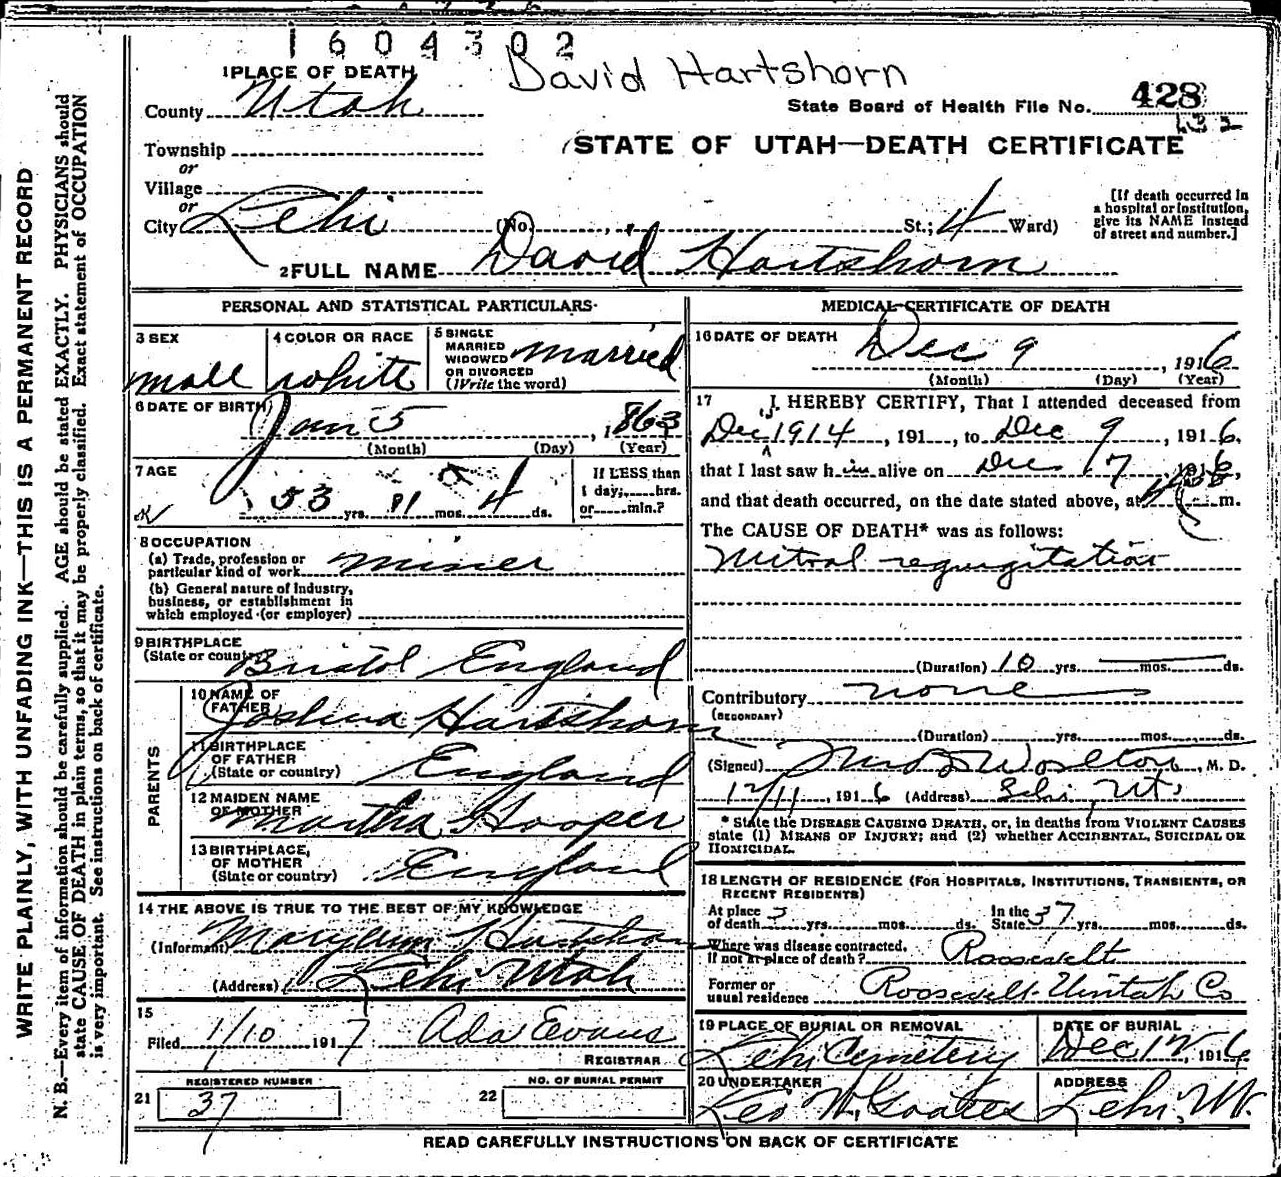 1604302
David Hartshorn
1 PLACE OF DEATH
County Utah
State Board of Health File No. 428
132
Township
or
Village
or
City Lehi
STATE OF UTAH—DEATH CERTIFICATE
(No. St.; 4 Ward)
[If death occurred in
a hospital or institution,
give its NAME instead
of street and number.]
2 FULL NAME David Hartshorn
PERSONAL AND STATISTICAL PARTICULARS
3 SEX
male
4 COLOR OR RACE
white
5 SINGLE
MARRIED
WIDOWED
OR DIVORCED
(Write the word)
married
6 DATE OF BIRTH
Jan 5, 1863
(Month) (Day) (Year)
7 AGE
53 yrs. 11 mos. 4 ds.
If LESS than
1 day, hrs.
or min.?
8 OCCUPATION
(a) Trade, profession or
particular kind of work miner
(b) General nature of industry,
business, or establishment in
which employed (or employer)
9 BIRTHPLACE
(State or country)
Bristol England
PARENTS
10 NAME OF
FATHER
Joshua Hartshorn
11 BIRTHPLACE
OF FATHER
(State or country)
England
12 MAIDEN NAME
OF MOTHER
Martha Hooper
13 BIRTHPLACE,
OF MOTHER
(State or country)
England
14 THE ABOVE IS TRUE TO THE BEST OF MY KNOWLEDGE
(Informant) Maryann Hartshorn
(Address) Lehi Utah
15
Filed 1/10 1917 Ada Evans
REGISTRAR
21 REGISTERED NUMBER
37
22 NO. OF BURIAL PERMIT
MEDICAL CERTIFICATE OF DEATH
16 DATE OF DEATH
Dec 9, 1916
(Month) (Day) (Year)
17 I HEREBY CERTIFY, That I attended deceased from
Dec 1914, 191 , to Dec 9, 1916,
that I last saw him alive on Dec 7, 1916,
and that death occurred, on the date stated above, at m.
The CAUSE OF DEATH* was as follows:
Mitral regurgitation
(Duration) 10 yrs. mos. ds.
Contributory none
(SECONDARY)
(Duration) yrs. mos. ds.
(Signed) , M. D.
12/11, 1916 (Address) Lehi, Ut.
* State the DISEASE CAUSING DEATH, or, in deaths from VIOLENT CAUSES
state (1) MEANS OF INJURY; and (2) whether ACCIDENTAL, SUICIDAL OR
HOMICIDAL.
18 LENGTH OF RESIDENCE (FOR HOSPITALS, INSTITUTIONS, TRANSIENTS, OR
RECENT RESIDENTS)
At place
of death 3 yrs. mos. ds. In the
State 37 yrs. mos. ds.
Where was disease contracted,
if not at place of death? Roosevelt
Former or
usual residence Roosevelt Uintah Co
19 PLACE OF BURIAL OR REMOVAL
Lehi Cemetery
DATE OF BURIAL
Dec 12, 1916
20 UNDERTAKER
Geo W. Goates
ADDRESS
Lehi, Ut.
READ CAREFULLY INSTRUCTIONS ON BACK OF CERTIFICATE
WRITE PLAINLY, WITH UNFADING INK—THIS IS A PERMANENT RECORD
N. B.—Every item of information should be carefully supplied. AGE should be stated EXACTLY. PHYSICIANS should
state CAUSE OF DEATH in plain terms, so that it may be properly classified. Exact statement of OCCUPATION
is very important. See instructions on back of certificate.